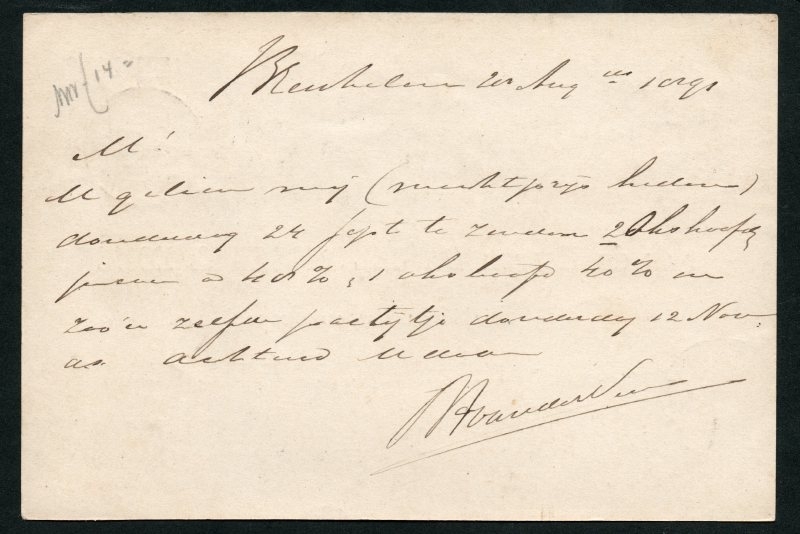 14 =
Breukelen 20 Aug 1891
M!
U gelieve mij (marktprijs heden)
donderdag 24 Sept te zenden 2 Okshoofd
à 48%, 1 okshoofd 40% en
zoo'n zelfde partijtje donderdag 12 Nov.
as Achtend UEd
van der Veen